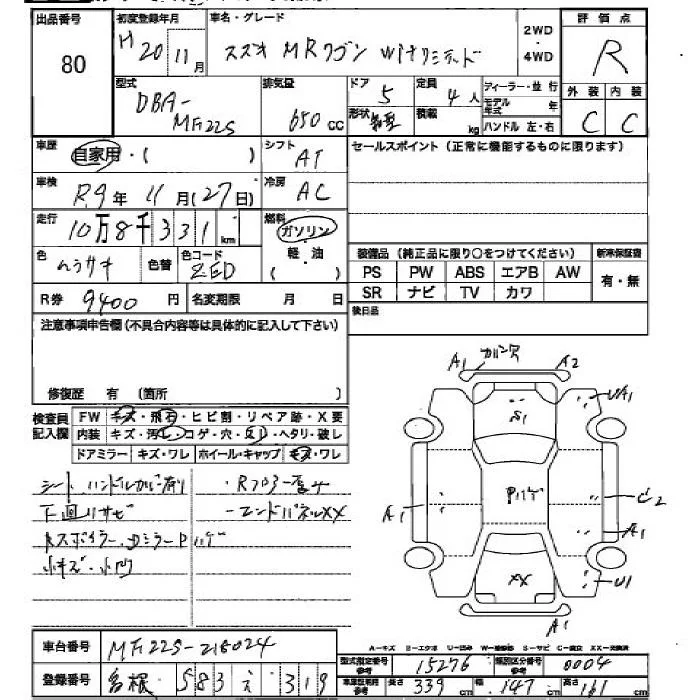 出品番号 80
初度登録年月 H20年11月
車名・グレード スズキ MRワゴン Witリミテッド
2WD・4WD
評価点 R
型式 DBA-MF22S
排気量 650cc
ドア 5
形状
定員 4人
積載 kg
ディーラー・並行
モデル年式 年
ハンドル 左・右
外装 C
内装 C
車歴 自家用・( )
シフト AT
セールスポイント (正常に機能するものに限ります)
車検 R9年11月(27日)
冷房 AC
走行 10万8千331km
燃料 ガソリン 軽・油 ( )
色 ムラサキ 色替
色コード ZED
装備品 (純正品に限り○をつけてください) 新車保証書
PS PW ABS エアB AW 有・無
SR ナビ TV カワ
R券 9400円 名変期限 月 日
後日品
注意事項申告欄(不具合内容等は具体的に記入して下さい)
修復歴 有 (箇所 )
検査員記入欄
FW キズ・飛石・ヒビ割・リペア跡・X要
内装 キズ・汚レ・コゲ・穴・ヘタリ・破レ
ドアミラー キズ・ワレ ホイール・キャップ キズ・ワレ
シート ハンドルカバー有り
・Rフロアー
下回りサビ
-エンドパネルXX
RスポイラーDミラーPハゲ
小キズ・小凹
A1 A2
S1
UA1
Pハゲ
A1
A1
XX
U1
A1
A-キズ
車台番号 MF22S-216024
登録番号 583 え 319
型式指定番号 参考 15276
類別区分番号 参考 0004
長さ 339cm 幅 147cm 高さ 161cm